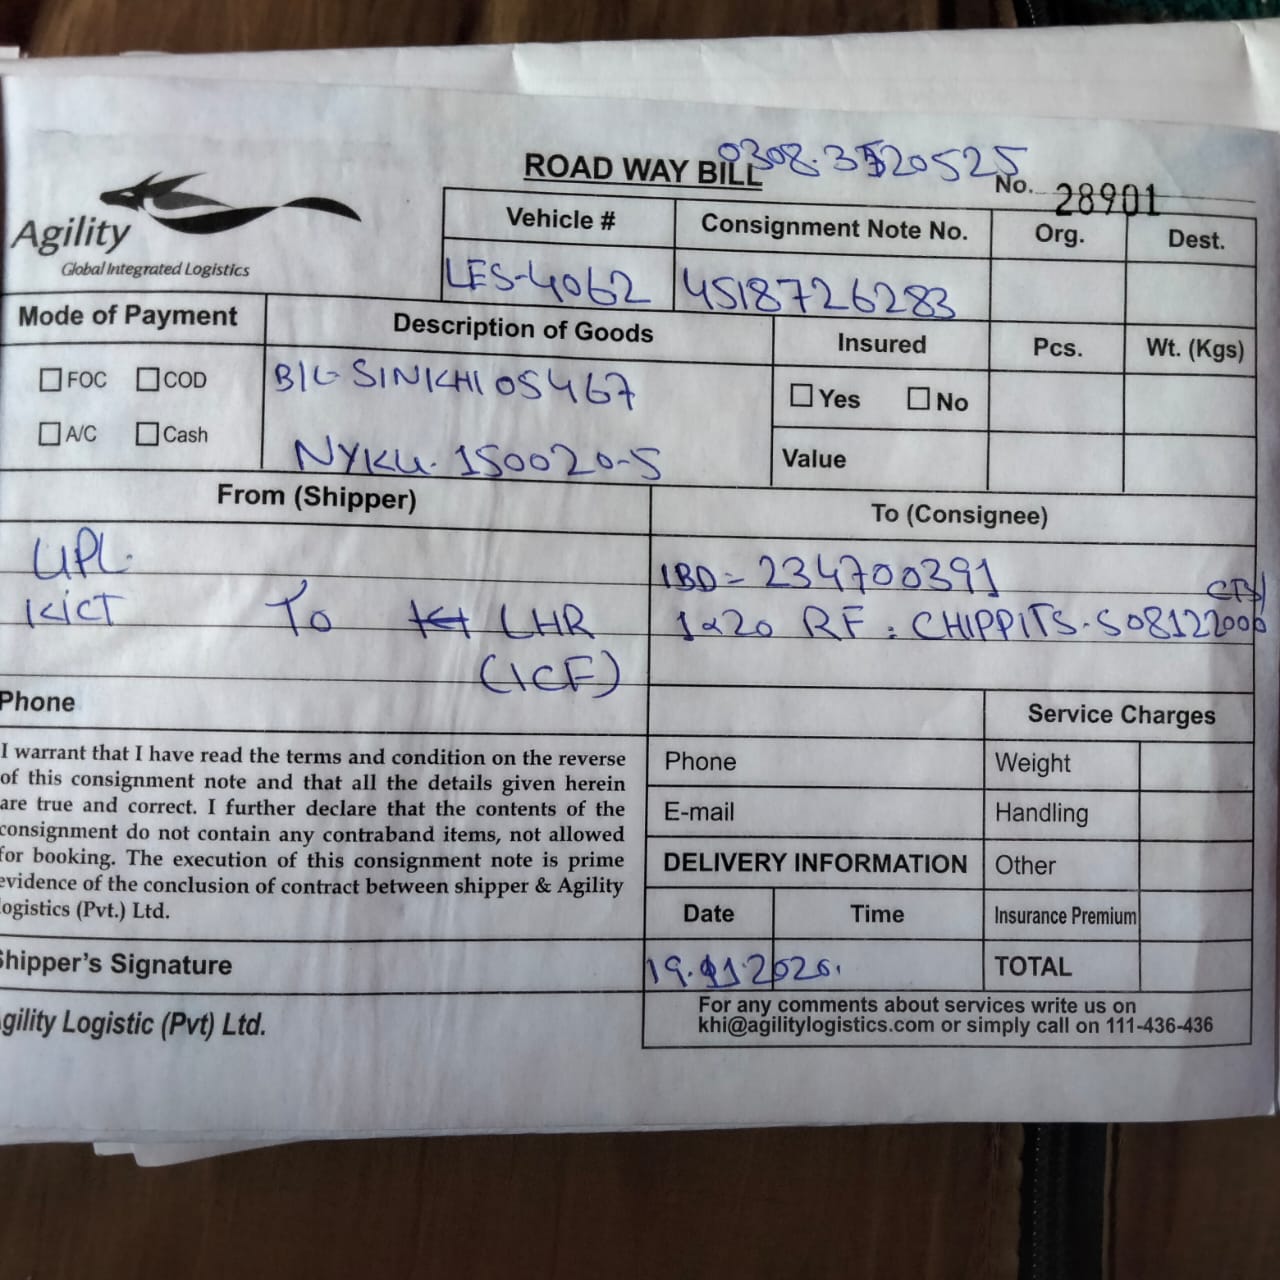 Agility
Global Integrated Logistics
ROAD WAY BILL
0308.3520525
No. 28901
Vehicle #
Consignment Note No.
Org.
Dest.
LES-4062
4518726283
Mode of Payment
Description of Goods
Insured
Pcs.
Wt. (Kgs)
FOC COD
A/C Cash
B/L SINKHI05467
NYKU. 150020-5
Yes No
Value
From (Shipper)
To (Consignee)
UPL.
KICT To LHR
(ICF)
IBD = 234700391
1x20 RF : CHIPPITS. S08122000
Phone
I warrant that I have read the terms and condition on the reverse
of this consignment note and that all the details given herein
are true and correct. I further declare that the contents of the
consignment do not contain any contraband items, not allowed
for booking. The execution of this consignment note is prime
evidence of the conclusion of contract between shipper & Agility
ogistics (Pvt.) Ltd.
hipper's Signature
gility Logistic (Pvt) Ltd.
Phone
E-mail
DELIVERY INFORMATION
Date
Time
19.11.2020.
Service Charges
Weight
Handling
Other
Insurance Premium
TOTAL
For any comments about services write us on
khi@agilitylogistics.com or simply call on 111-436-436